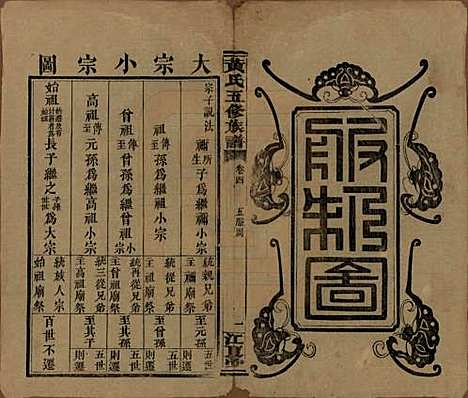 服制圖
黃氏五修族譜
卷四
五服圖
一
江夏堂
大宗小宗圖
宗子說法
禰所生子為繼禰小宗
統親兄弟
主禰廟祭
至元孫五世則遷
祖傳至曾孫為繼祖小宗
統從兄弟
主祖廟祭
至曾孫五世則遷
曾祖傳至元孫為繼曾祖小宗
統再從兄弟
主曾祖廟祭
至其孫五世則遷
高祖傳至元孫為繼高祖小宗
統三從兄弟
主高祖廟祭
至其子五世則遷
始祖
長子繼之
為大宗
統族人宗
主始祖廟祭
百世不遷